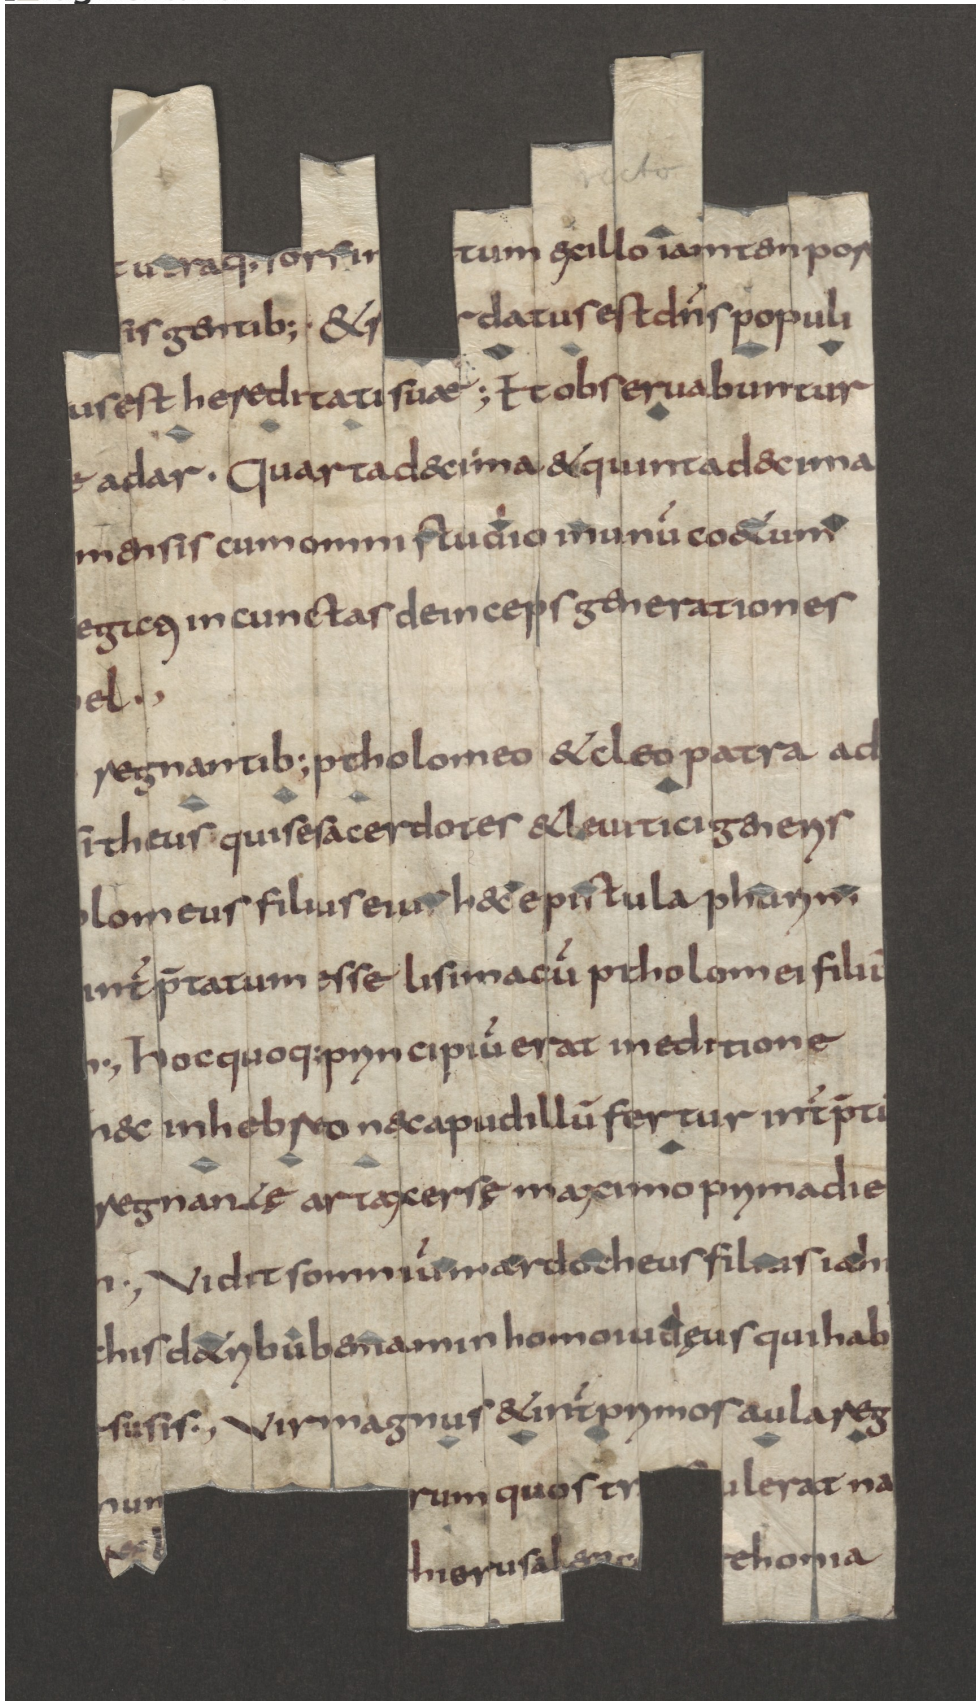 utraq; sors in tum & illo iam tempor
sis gentib; & r datus est dñs populi
us est hereditati suae; Et observabuntur
adar. Quarta decima & quinta decima
mensis cum omni studio inunū coetum
egreg in cunctas deinceps generationes
el.,
regnantib; ptholomeo & cleopatra ad
itheus qui se sacerdotes & leuitici generis
lomeus filius eius hāc epistula phurim
int̄p̄tatum esse lisimacū ptholomei filiū
., Hoc quoq: principiū erat in editione
nec in hebreo nec apud illū fertur int̄p̄ti
regnante artaxerse maximo prima die
., Vidit somniū mardocheus filius iairi
chis de tribu beniamin homo iudęus qui hab
susis., Vir magnus & int̄ primos aula reg
rum quos tr ulerat na
hierusalem iehonia
recto